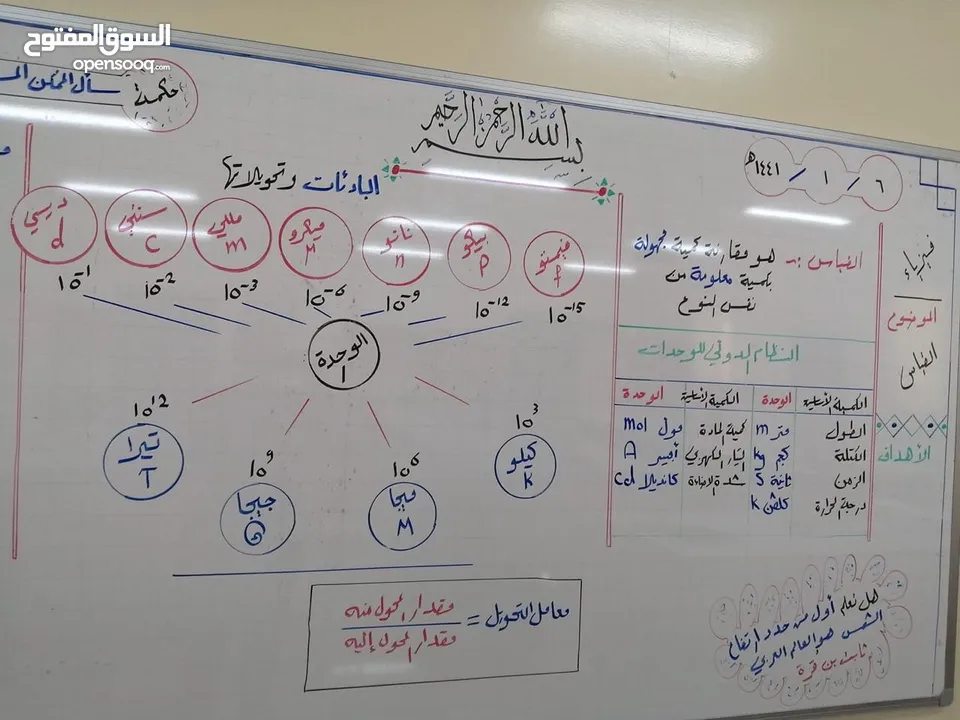 السوق المفتوح
opensooq.com
حكمة
بسم الله الرحمن الرحيم
٦ / ١ / ١٤٤١هـ
فيزياء
الموضوع
القياس
الأهداف
القياس :- هو مقارنة كمية مجهولة
بكمية معلومة من
نفس النوع
النظام الدولي للوحدات
الكمية الأساسية الوحدة الكمية الأساسية الوحدة
الطول متر m كمية المادة مول mol
الكتلة كجم kg التيار الكهربي أمبير A
الزمن ثانية s شدة الإضاءة كانديلا cd
درجة الحرارة كلفن k
هل تعلم أول من حدد ارتفاع
الشمس هو العالم العربي
ثابت بن قرة
البادئات وتحويلاتها
فيمتو f 10⁻¹⁵
بيكو p 10⁻¹²
نانو n 10⁻⁹
ميكرو M 10⁻⁶
مللي m 10⁻³
سنتي c 10⁻²
ديسي d 10⁻¹
الوحدة
1
10³ كيلو k
10⁶ ميجا M
10⁹ جيجا G
10¹² تيرا T
معامل التحويل = مقدار المحول منه
مقدار المحول إليه